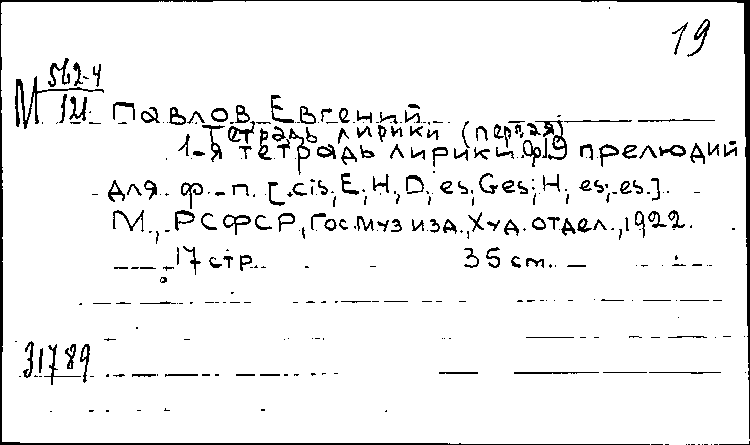 19
М 562-4
121
Павлов, Евгений
Тетрадь лирики (первая)
1-я тетрадь лирики. 9 прелюдий
для ф.-п. [cis, E, H, D, es, Ges, H, es, es.].
М., РСФСР, Гос. муз изд., Худ. отдел., 1922.
17 стр. 35 cm.
31789